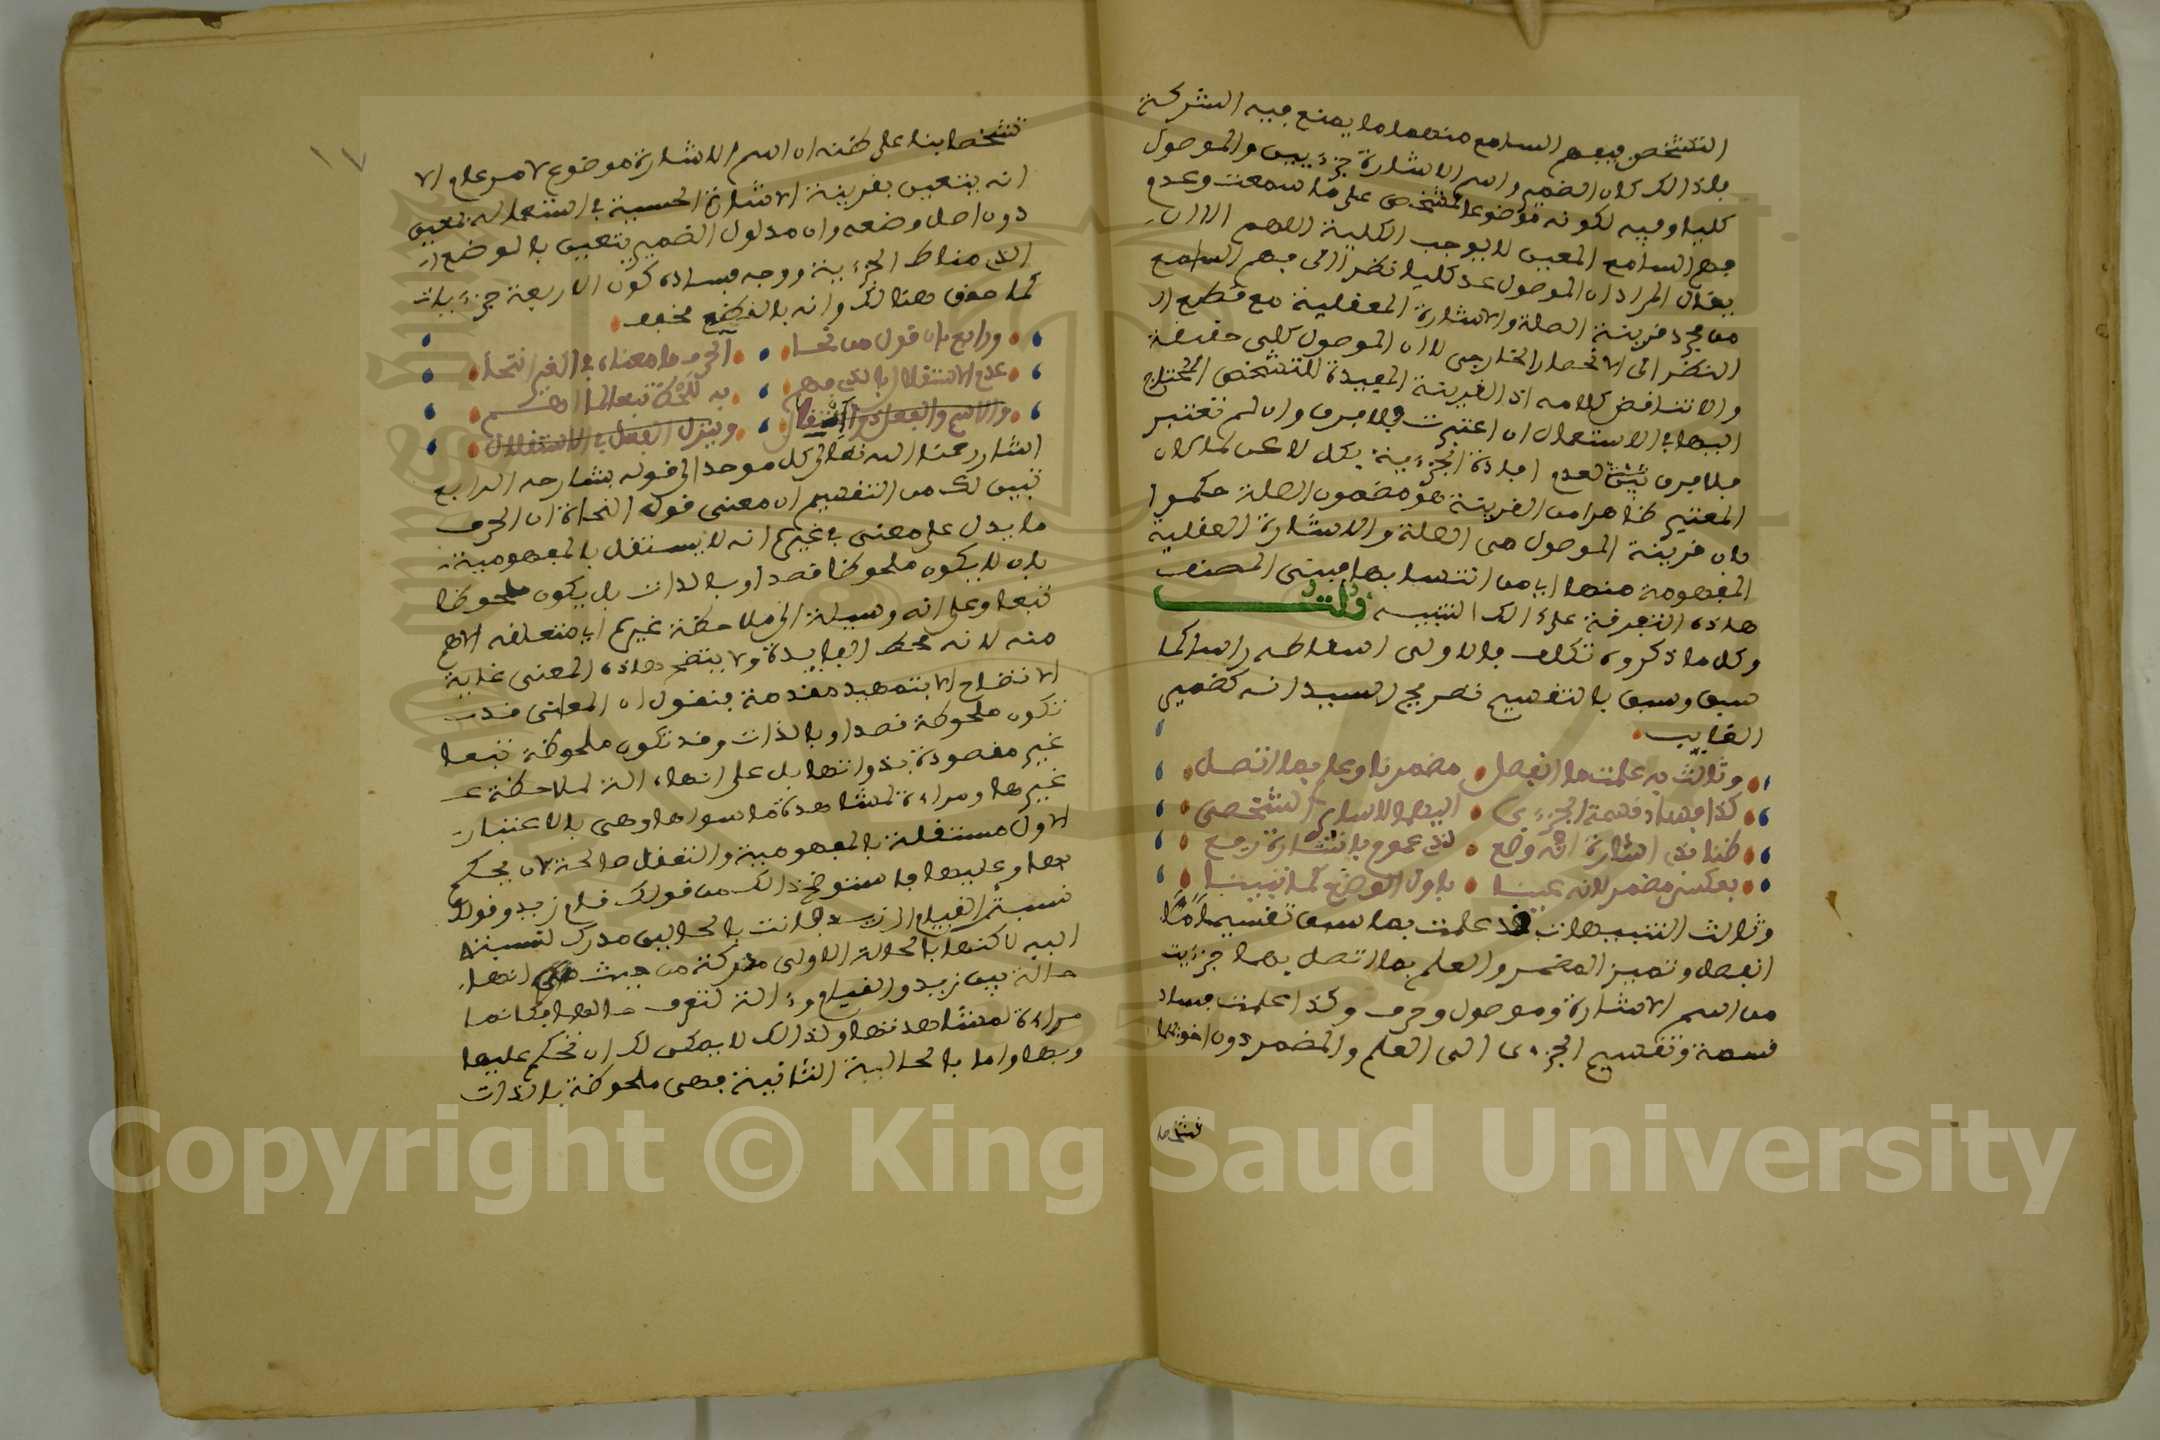 التشخص فيفهم السامع منهما ما يمنع فيه الشركة
فلذالك كان الضمير واسم الاشارة جزءيين والموصول
كليا وفيه لكونه موضوعا لمشخص على ما سمعت وعدم
فهم السامع المعين لا يوجب الكلية اللهم الا ان
يقال المراد ان الموصول عد كليا نظرا الى فهم السامع
من مجرد قرينة الصلة والاشارة العقلية مع قطع
النظر الى الانحصار الخارجي لا ان الموصول كلي حقيقة
والا تناقض كلامه اذ القرينة المفيدة للتشخص المحتاج
اليها في الاستعمال ان اعتبرت فلا فرق وان لم تعتبر
فلا فرق لعدم افادة الجزءية بكل لاكن لما كان
المعتبر ظاهرا من القرينة هو مضمون الصلة حكموا
بان قرينة الموصول هي الصلة والاشارة العقلية
المفهومة منها اي من انتسابها فبنى المصنف
هاذه التفرقة على ذالك التنبيه قلت
وكل ما ذكروه تكلف فالاولى اسقاطه راسا كما
سبق وسبق بالتقسيم تصريح السيد انه كضمير
الغايب
وثالث به علمت ما انفصل مضمرنا وعلم بما اتصل
كذا فساد قسمة الجزءي اليهما لا سايرا لتشخصي
ظنا بذي اشارة انه وضع لذي عموم باشارة رفع
بعكس مضمر لانه عينا باول الوضع كما تبينا
وثالث التنبيهات قد علمت بما سبق تقسيما ما
انفصل وتميز المضمر والعلم بما اتصل بهما جزءيت
من اسم الاشارة وموصول وحرف وكذا علمت فساد
قسمة وتقسيم الجزءي الى العلم والمضمر دون اخوتهما
تشخصا
١٧
تشخصا بناء على ظنه ان اسم الاشارة موضوع لامر عام الا
انه يتعين بقرينة الاشارة الحسية في استعماله لمعين
دون اصل وضعه وان مدلول الضمير يتعين بالوضع
الذي مناط الجزءية ووجه فساده كون الاربعة جزءيات
كما حقق هنالك وانه بالقطع محقق
ورابع بان قول من نحا الحرف ما معناه في الغير انتحا
عدم الاستقلال بالذي فهم به لحظ تبعا لما
والاسم والفعل ذوا استقلال وينزل الفعل في الاستقلال
اشار رحمنا الله تعالى كل موحد الى قوله بشارحه الرابع
تبين لك من التقسيم ان معنى قول النحاة ان الحرف
ما يدل على معنى في غيره انه لا يستقل بالمفهومية
بان لا يكون ملحوظا قصدا وبالذات بل يكون ملحوظا
تبعا وعلى انه وسيلة الى ملاحظة غيره اي متعلقه الاهم
منه لانه محط الفايدة ولا يتضح هاذه المعنى غاية
الاتضاح الا بتمهيد مقدمة فنقول ان المعاني قد
تكون ملحوظة قصدا وبالذات وقد تكون ملحوظة تبعا
غير مقصودة بذواتها بل على انها ءالة لملاحظة
غيرها ومرءاة لمشاهدة ما سواها وهي بالاعتبار
الاول مستقلة بالمفهومية والتعقل صالحة لان يحكم
بها وعليها واستوضح ذالك من قولك قام زيد وقولك
نسبة القيام الى زيد فانت بالحالين مدرك لنسبة
اليه لاكنها بالحالة الاولى مدركة من حيث انها
حالة بين زيد والقيام وءالة لتعرف حالهما فكانها
مرءاة لمشاهدتهما ولذالك لا يمكن لك ان تحكم عليها
وبها واما بالحالة الثانية فهي ملحوظة بالذات
Copyright © King Saud University